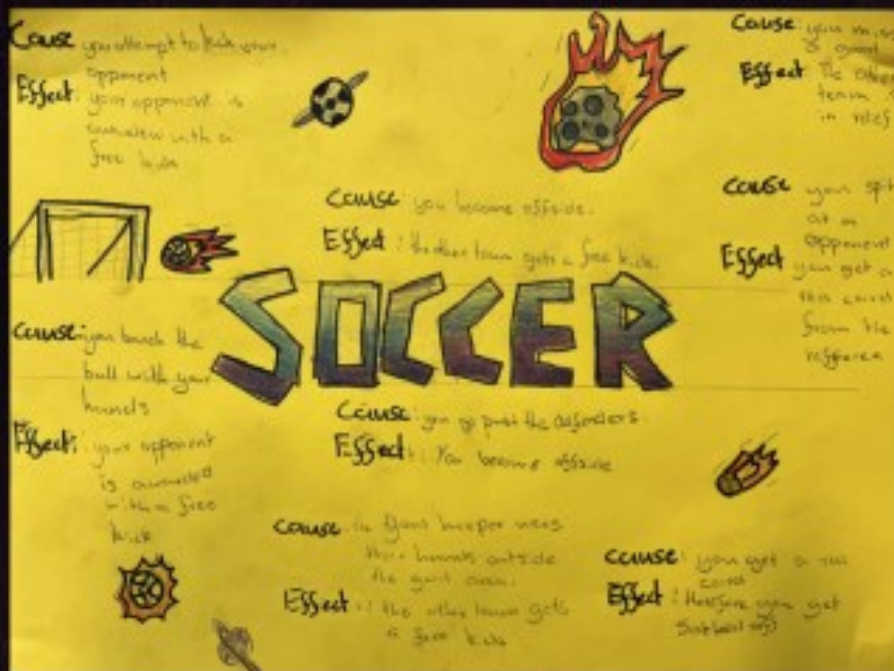 Cause you attempt to kick your
opponent
Effect: your opponent is
with a
free kick
Cause: you
a goal
Effect: The other
team
in relief
Cause: you become offside.
Effect: the other team gets a free kick.
Cause your spit
at an
opponent
Effect you get a
card
from the
SOCCER
Cause: you touch the
ball with your
hands
Effect: your opponent
is awarded
with a free
kick
Cause: you go past the defenders
Effect: You become offside
Cause: keeper uses
hands outside
the goal area.
Effect: the other team gets
a free kick
Cause: you get a red
card
Effect: therefore you get